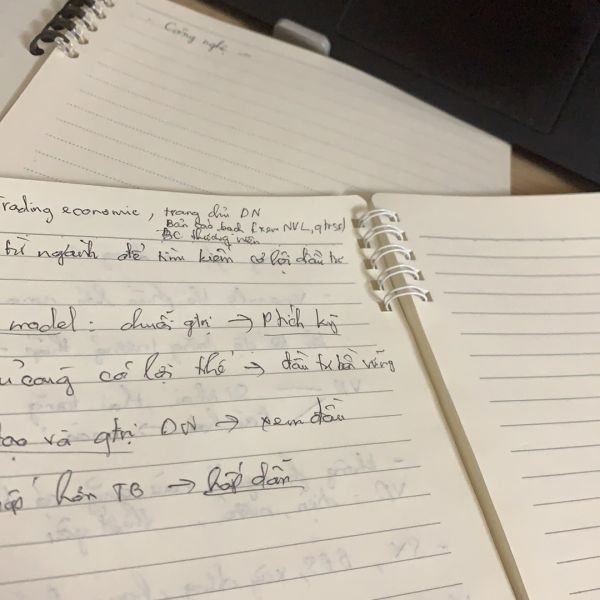 Công nghệ
Trading economic, trang chủ DN
Bản cáo bạch (xem NVL, qtrsx)
BC thường niên
từ ngành để tìm kiếm cơ hội đầu tư
model: chuỗi gtrị → Ptích kỹ
cạnh có lợi thế → đầu tư bền vững
đạo và qtrị DN → xem đầu
thấp hơn TB → hấp dẫn